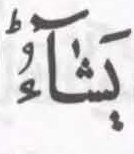 يَشَآءُؕ